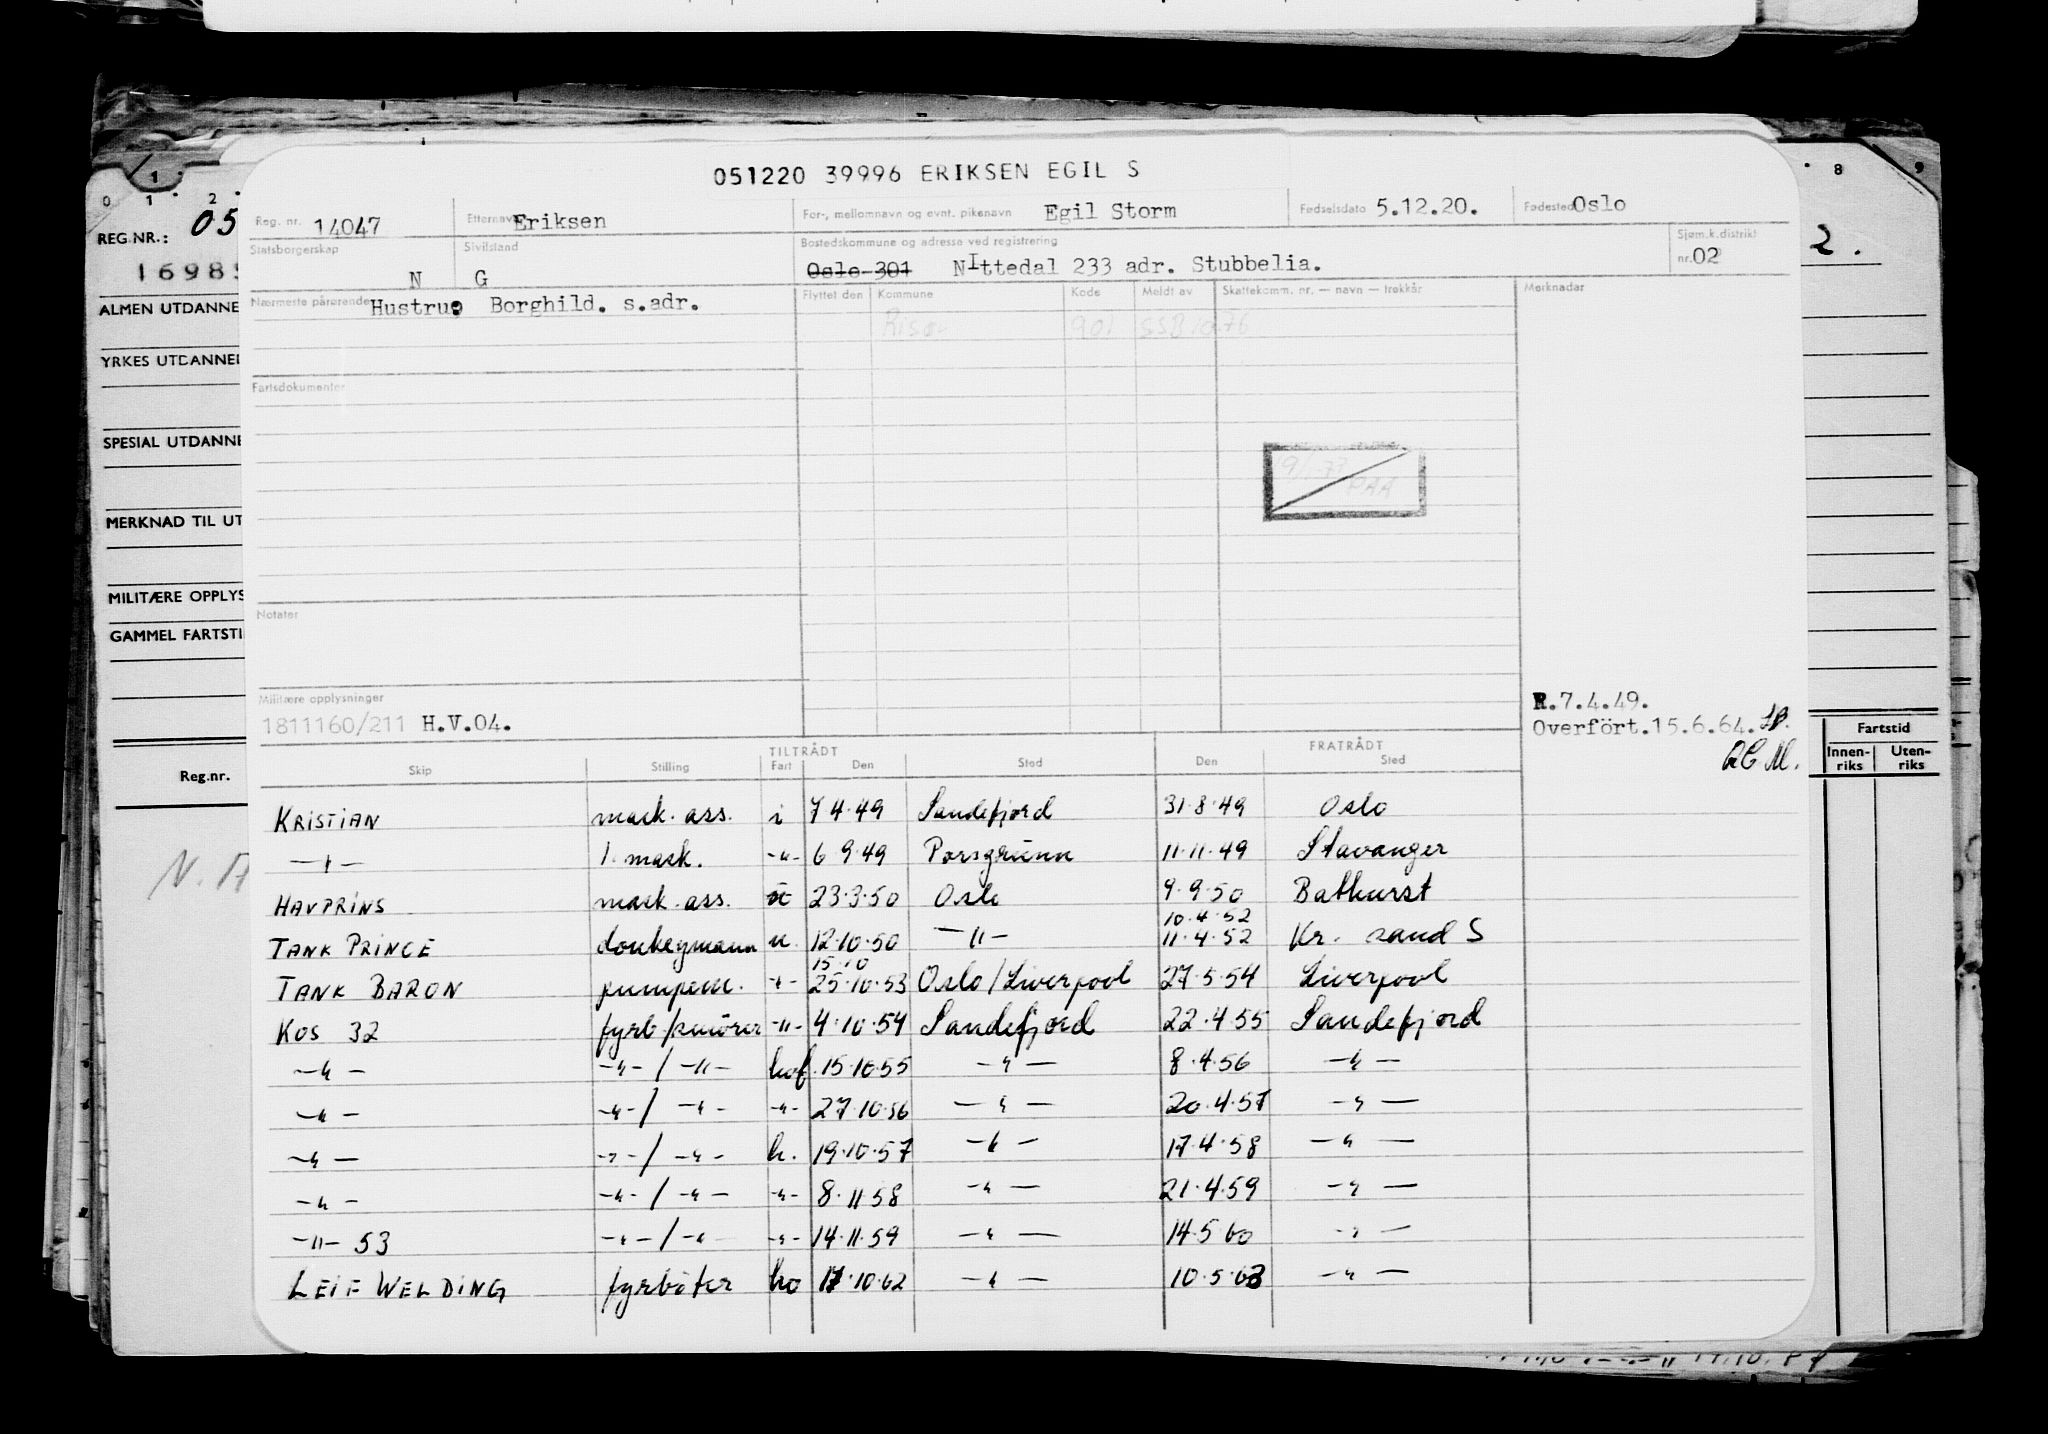 051220 39996 ERIKSEN EGIL S
Reg. nr. 14047 Etternavn Eriksen For-, mellomnavn og evnt. pikenavn Egil Storm Fødselsdato 5.12.20. Fødested Oslo
Statsborgerskap N Sivilstand G Bostedskommune og adresse ved registrering Oslo 301 NIttedal 233 adr. Stubbelia. Sjøm.k.distrikt nr. 02
Nærmeste pårørende Hustru, Borghild. s.adr. Flyttet den Kommune Kode Meldt av Skattekomm. nr. — navn — trekkår Merknader
Risør 901 SSB 10.76
Fartsdokumenter
Notater
Militære opplysninger
1811160/211 H.V.04.
R.7.4.49.
Overfört.15.6.64.
TILTRÅDT FRATRÅDT
Skip Stilling Fart Den Sted Den Sted
KRISTIAN mask. ass. i 7 4.49 Sandefjord 31.8.49 Oslo
—"— 1. mask. -"- 6 9.49 Porsgrunn 11.11.49 Stavanger
HAVPRINS mask. ass. 23.3.50 Oslo 9.9.50 Bathurst
10.4.52
TANK PRINCE donkeymann u. 12.10.50 —"— 11.4.52 Kr. sand S
15.10
TANK BARON pumpem. -"- 25.10.53 Oslo/Liverpool 27.5.54 Liverpool
KOS 32 fyrb/smører -"- 4.10.54 Sandefjord 22.4.55 Sandefjord
—"— -"-/-"- hof. 15.10.55 —"— 8.4.56 —"—
—"— -"-/-"- -"- 27.10.56 —"— 20.4.57 —"—
—"— -"-/-"- h. 19.10.57 —"— 17.4.58 —"—
—"— -"-/-"- -"- 8.11 58 —"— 21.4.59 —"—
-"- 53 -"-/-"- -"- 14.11.59 —"— 14.5 60 —"—
LEIF WELDING fyrbøter ho 17.10.62 —"— 10.5.63 —"—
0 1 2
REG.NR.: 05
16985
ALMEN UTDANNE
YRKES UTDANNEL
SPESIAL UTDANNE
MERKNAD TIL UT
MILITÆRE OPPLYS
GAMMEL FARTSTI
Reg.nr.
8 9
2.
Fartstid
Innen-riks Uten-riks